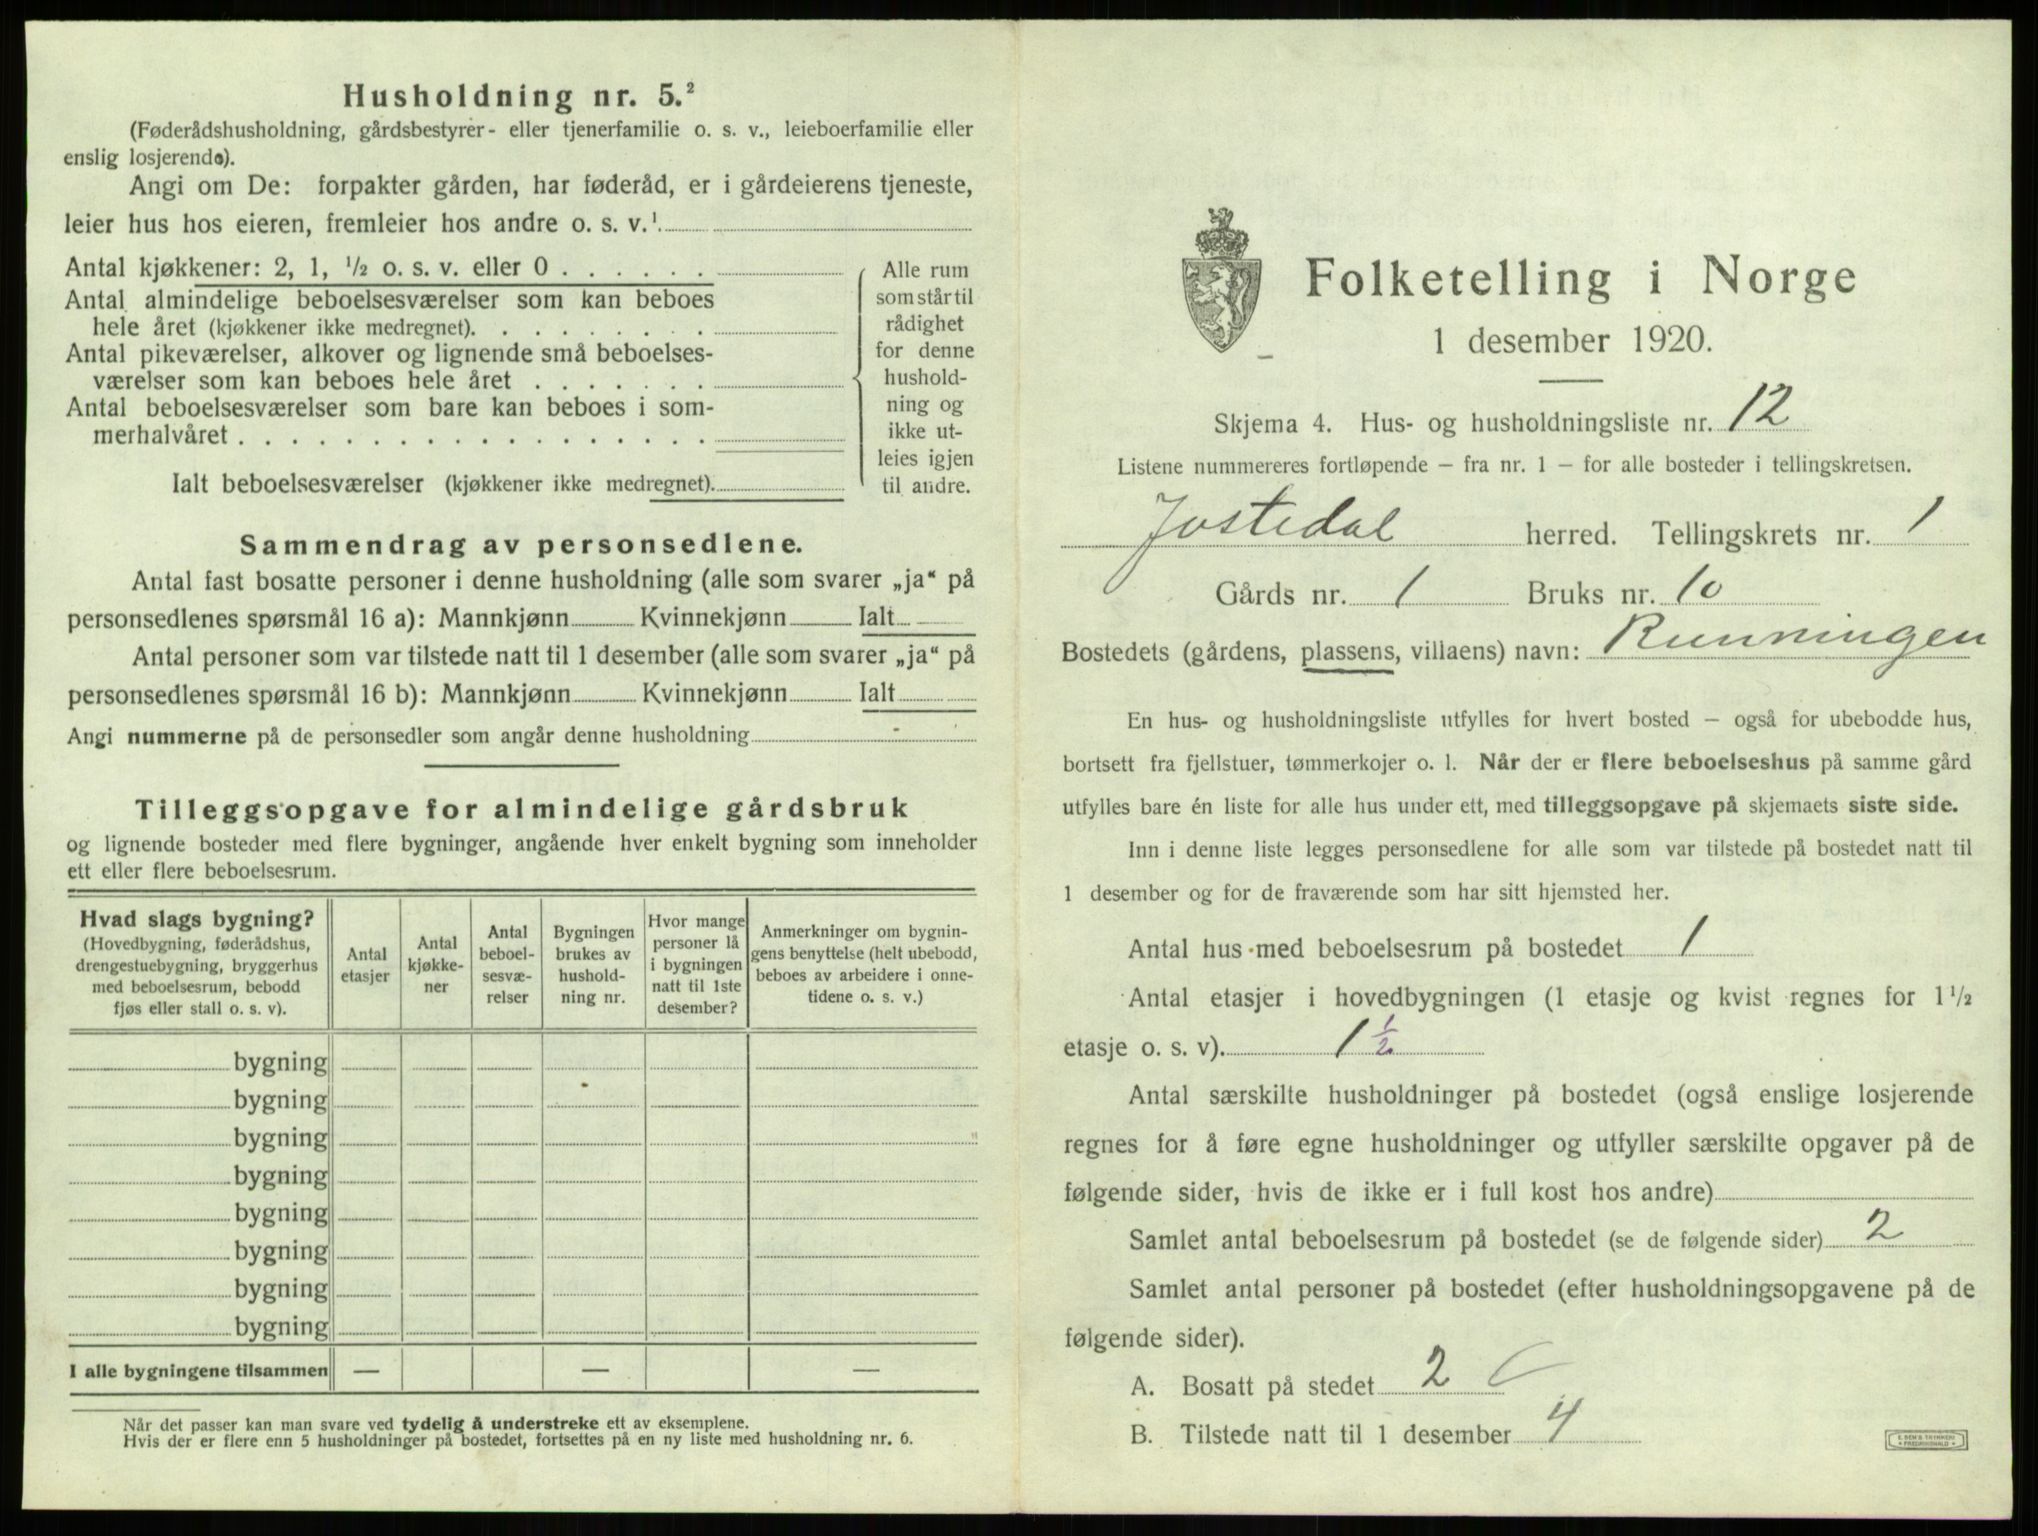 Husholdning nr. 5.²
(Føderådshusholdning, gårdsbestyrer- eller tjenerfamilie o. s. v., leieboerfamilie eller
enslig losjerende).
Angi om De: forpakter gården, har føderåd, er i gårdeierens tjeneste,
leier hus hos eieren, fremleier hos andre o. s. v.¹
Antal kjøkkener: 2, 1, ½ o. s. v. eller 0 . . . . . .
Antal almindelige beboelsesværelser som kan beboes
hele året (kjøkkener ikke medregnet). . . . . . . . .
Antal pikeværelser, alkover og lignende små beboelses-
værelser som kan beboes hele året . . . . . . .
Antal beboelsesværelser som bare kan beboes i som-
merhalvåret . . . . . . . . . . . . . . . . . .
Ialt beboelsesværelser (kjøkkener ikke medregnet).
Alle rum
som står til
rådighet
for denne
hushold-
ning og
ikke ut-
leies igjen
til andre.
Sammendrag av personsedlene.
Antal fast bosatte personer i denne husholdning (alle som svarer „ja“ på
personsedlenes spørsmål 16 a): Mannkjønn Kvinnekjønn Ialt
Antal personer som var tilstede natt til 1 desember (alle som svarer „ja“ på
personsedlenes spørsmål 16 b): Mannkjønn Kvinnekjønn Ialt
Angi nummerne på de personsedler som angår denne husholdning
Tilleggsopgave for almindelige gårdsbruk
og lignende bosteder med flere bygninger, angående hver enkelt bygning som inneholder
ett eller flere beboelsesrum.
Hvad slags bygning?
(Hovedbygning, føderådshus,
drengestuebygning, bryggerhus
med beboelsesrum, bebodd
fjøs eller stall o. s. v).
Antal
etasjer
Antal
kjøkke-
ner
Antal
beboel-
sesvæ-
relser
Bygningen
brukes av
hushold-
ning nr.
Hvor mange
personer lå
i bygningen
natt til 1ste
desember?
Anmerkninger om bygnin-
gens benyttelse (helt ubebodd,
beboes av arbeidere i onne-
tidene o. s. v.)
bygning
bygning
bygning
bygning
bygning
bygning
bygning
bygning
I alle bygningene tilsammen — — —
Når det passer kan man svare ved tydelig å understreke ett av eksemplene.
Hvis der er flere enn 5 husholdninger på bostedet, fortsettes på en ny liste med husholdning nr. 6.
Folketelling i Norge
1 desember 1920.
Skjema 4. Hus- og husholdningsliste nr. 12
Listene nummereres fortløpende – fra nr. 1 – for alle bosteder i tellingskretsen.
Jostedal herred. Tellingskrets nr. 1
Gårds nr. 1 Bruks nr. 10
Bostedets (gårdens, plassens, villaens) navn: Runningen
En hus- og husholdningsliste utfylles for hvert bosted – også for ubebodde hus,
bortsett fra fjellstuer, tømmerkojer o. l. Når der er flere beboelseshus på samme gård
utfylles bare én liste for alle hus under ett, med tilleggsopgave på skjemaets siste side.
Inn i denne liste legges personsedlene for alle som var tilstede på bostedet natt til
1 desember og for de fraværende som har sitt hjemsted her.
Antal hus med beboelsesrum på bostedet 1
Antal etasjer i hovedbygningen (1 etasje og kvist regnes for 1½
etasje o. s. v). 1 ½
Antal særskilte husholdninger på bostedet (også enslige losjerende
regnes for å føre egne husholdninger og utfyller særskilte opgaver på de
følgende sider, hvis de ikke er i full kost hos andre)
Samlet antal beboelsesrum på bostedet (se de følgende sider) 2
Samlet antal personer på bostedet (efter husholdningsopgavene på de
følgende sider).
A. Bosatt på stedet 2
B. Tilstede natt til 1 desember 4